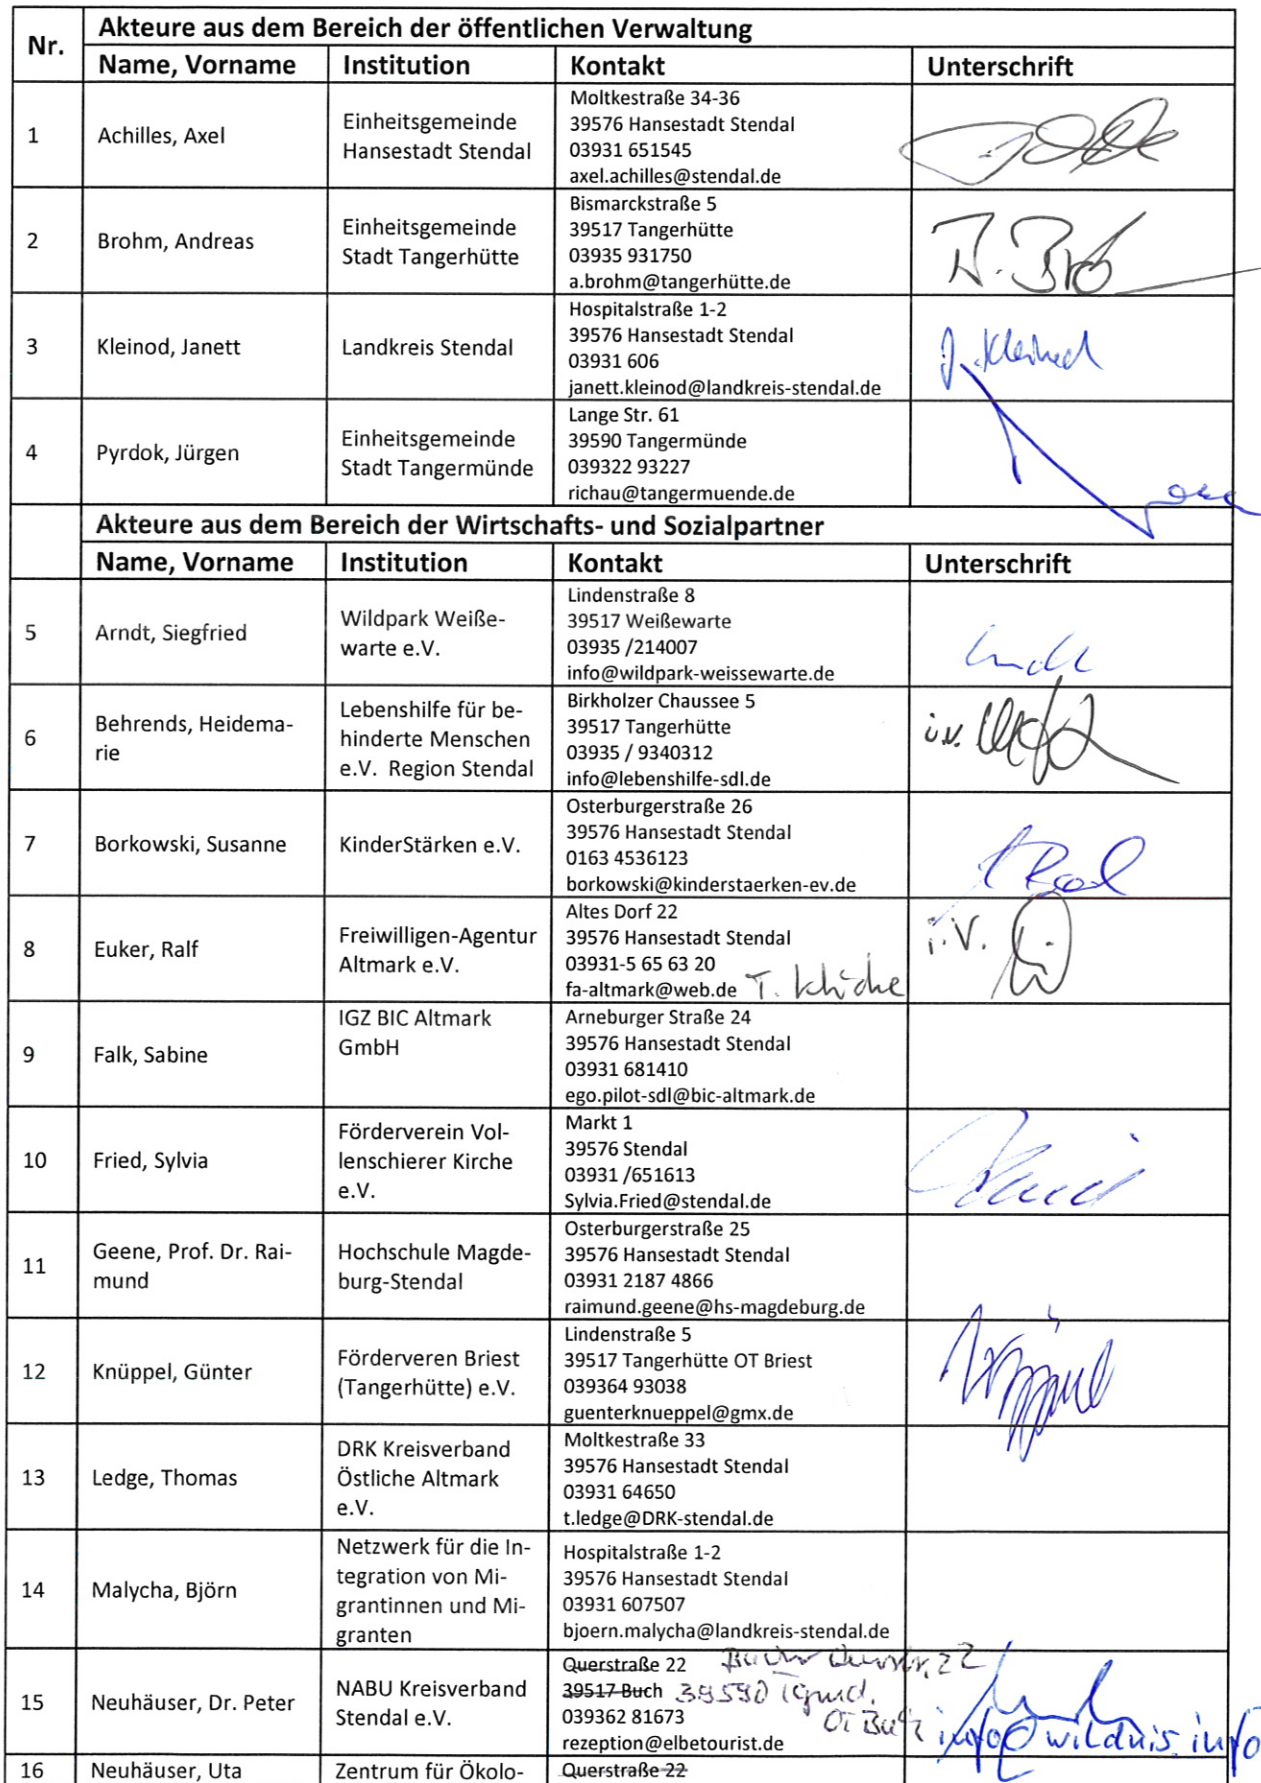 Nr.
Akteure aus dem Bereich der öffentlichen Verwaltung
Name, Vorname Institution Kontakt Unterschrift
1
Achilles, Axel
Einheitsgemeinde
Hansestadt Stendal
Moltkestraße 34-36
39576 Hansestadt Stendal
03931 651545
axel.achilles@stendal.de
2
Brohm, Andreas
Einheitsgemeinde
Stadt Tangerhütte
Bismarckstraße 5
39517 Tangerhütte
03935 931750
a.brohm@tangerhütte.de
3
Kleinod, Janett
Landkreis Stendal
Hospitalstraße 1-2
39576 Hansestadt Stendal
03931 606
janett.kleinod@landkreis-stendal.de
J. Kleinod
4
Pyrdok, Jürgen
Einheitsgemeinde
Stadt Tangermünde
Lange Str. 61
39590 Tangermünde
039322 93227
richau@tangermuende.de
Akteure aus dem Bereich der Wirtschafts- und Sozialpartner
Name, Vorname Institution Kontakt Unterschrift
5
Arndt, Siegfried
Wildpark Weiße-
warte e.V.
Lindenstraße 8
39517 Weißewarte
03935 /214007
info@wildpark-weissewarte.de
6
Behrends, Heidema-
rie
Lebenshilfe für be-
hinderte Menschen
e.V. Region Stendal
Birkholzer Chaussee 5
39517 Tangerhütte
03935 / 9340312
info@lebenshilfe-sdl.de
i.V.
7
Borkowski, Susanne
KinderStärken e.V.
Osterburgerstraße 26
39576 Hansestadt Stendal
0163 4536123
borkowski@kinderstaerken-ev.de
8
Euker, Ralf
Freiwilligen-Agentur
Altmark e.V.
Altes Dorf 22
39576 Hansestadt Stendal
03931-5 65 63 20
fa-altmark@web.de T.
i.V.
9
Falk, Sabine
IGZ BIC Altmark
GmbH
Arneburger Straße 24
39576 Hansestadt Stendal
03931 681410
ego.pilot-sdl@bic-altmark.de
10
Fried, Sylvia
Förderverein Vol-
lenschierer Kirche
e.V.
Markt 1
39576 Stendal
03931 /651613
Sylvia.Fried@stendal.de
11
Geene, Prof. Dr. Rai-
mund
Hochschule Magde-
burg-Stendal
Osterburgerstraße 25
39576 Hansestadt Stendal
03931 2187 4866
raimund.geene@hs-magdeburg.de
12
Knüppel, Günter
Förderveren Briest
(Tangerhütte) e.V.
Lindenstraße 5
39517 Tangerhütte OT Briest
039364 93038
guenterknueppel@gmx.de
13
Ledge, Thomas
DRK Kreisverband
Östliche Altmark
e.V.
Moltkestraße 33
39576 Hansestadt Stendal
03931 64650
t.ledge@DRK-stendal.de
14
Malycha, Björn
Netzwerk für die In-
tegration von Mi-
grantinnen und Mi-
granten
Hospitalstraße 1-2
39576 Hansestadt Stendal
03931 607507
bjoern.malycha@landkreis-stendal.de
15
Neuhäuser, Dr. Peter
NABU Kreisverband
Stendal e.V.
Querstraße 22
39517 Buch 39590 Tgmd.
039362 81673 OT Buch
rezeption@elbetourist.de
info@wildnis.info
16
Neuhäuser, Uta
Zentrum für Ökolo-
Querstraße 22